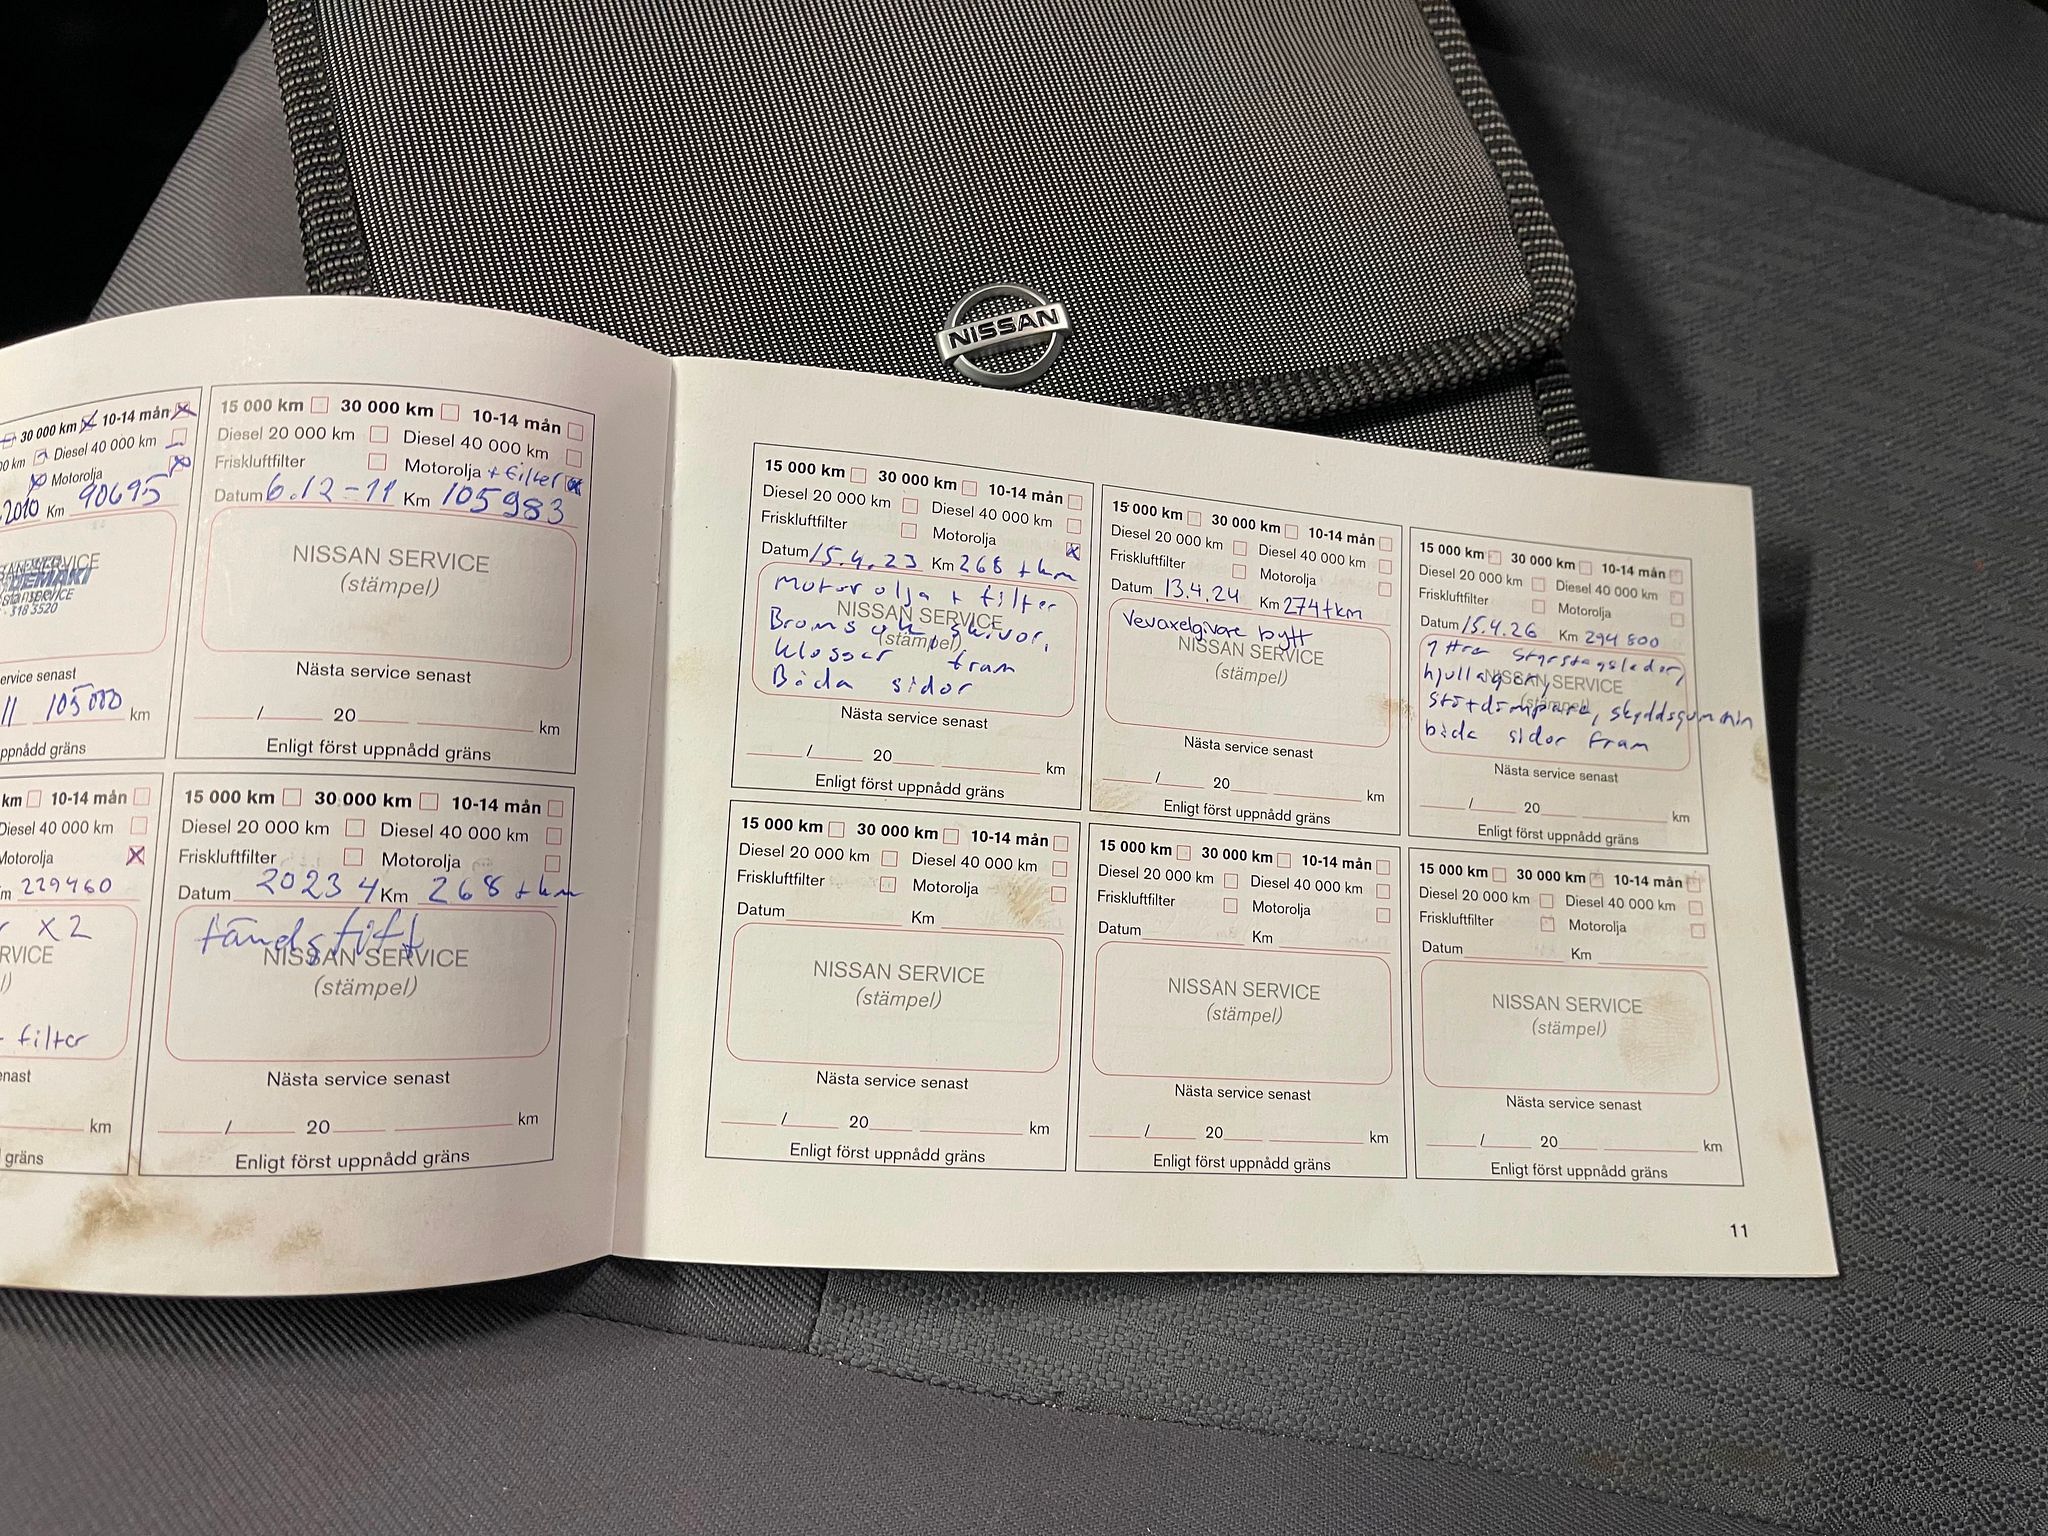 NISSAN
30 000 km 10-14 mån
Diesel 40 000 km
Motorolja
2010 Km 90695
service senast
11 105000 km
uppnådd gräns
15 000 km 30 000 km 10-14 mån
Diesel 20 000 km Diesel 40 000 km
Friskluftfilter Motorolja + filter
Datum 6.12-11 Km 105983
NISSAN SERVICE
(stämpel)
Nästa service senast
/ 20 km
Enligt först uppnådd gräns
km 10-14 mån
Diesel 40 000 km
Motorolja
Km 229460
x2
+ filter
km
gräns
15 000 km 30 000 km 10-14 mån
Diesel 20 000 km Diesel 40 000 km
Friskluftfilter Motorolja
Datum 2023 4 Km 268 tkm
tändstift
NISSAN SERVICE
(stämpel)
Nästa service senast
/ 20 km
Enligt först uppnådd gräns
15 000 km 30 000 km 10-14 mån
Diesel 20 000 km Diesel 40 000 km
Friskluftfilter Motorolja
Datum 15.4.23 Km 268 tkm
Motorolja + filter
NISSAN SERVICE
Bromsok, skivor,
(stämpel)
klossar fram
Båda sidor
Nästa service senast
/ 20 km
Enligt först uppnådd gräns
15 000 km 30 000 km 10-14 mån
Diesel 20 000 km Diesel 40 000 km
Friskluftfilter Motorolja
Datum 13.4.24 Km 274tkm
Vevaxelgivare bytt
NISSAN SERVICE
(stämpel)
Nästa service senast
/ 20 km
Enligt först uppnådd gräns
15 000 km 30 000 km 10-14 mån
Diesel 20 000 km Diesel 40 000 km
Friskluftfilter Motorolja
Datum 15.4.26 Km 294 800
Yttre styrstagsleder,
hjullager,
NISSAN SERVICE
(stämpel)
stötdämpare, skyddsgummin
båda sidor fram
Nästa service senast
/ 20 km
Enligt först uppnådd gräns
15 000 km 30 000 km 10-14 mån
Diesel 20 000 km Diesel 40 000 km
Friskluftfilter Motorolja
Datum Km
NISSAN SERVICE
(stämpel)
Nästa service senast
/ 20 km
Enligt först uppnådd gräns
15 000 km 30 000 km 10-14 mån
Diesel 20 000 km Diesel 40 000 km
Friskluftfilter Motorolja
Datum Km
NISSAN SERVICE
(stämpel)
Nästa service senast
/ 20 km
Enligt först uppnådd gräns
15 000 km 30 000 km 10-14 mån
Diesel 20 000 km Diesel 40 000 km
Friskluftfilter Motorolja
Datum Km
NISSAN SERVICE
(stämpel)
Nästa service senast
/ 20 km
Enligt först uppnådd gräns
11